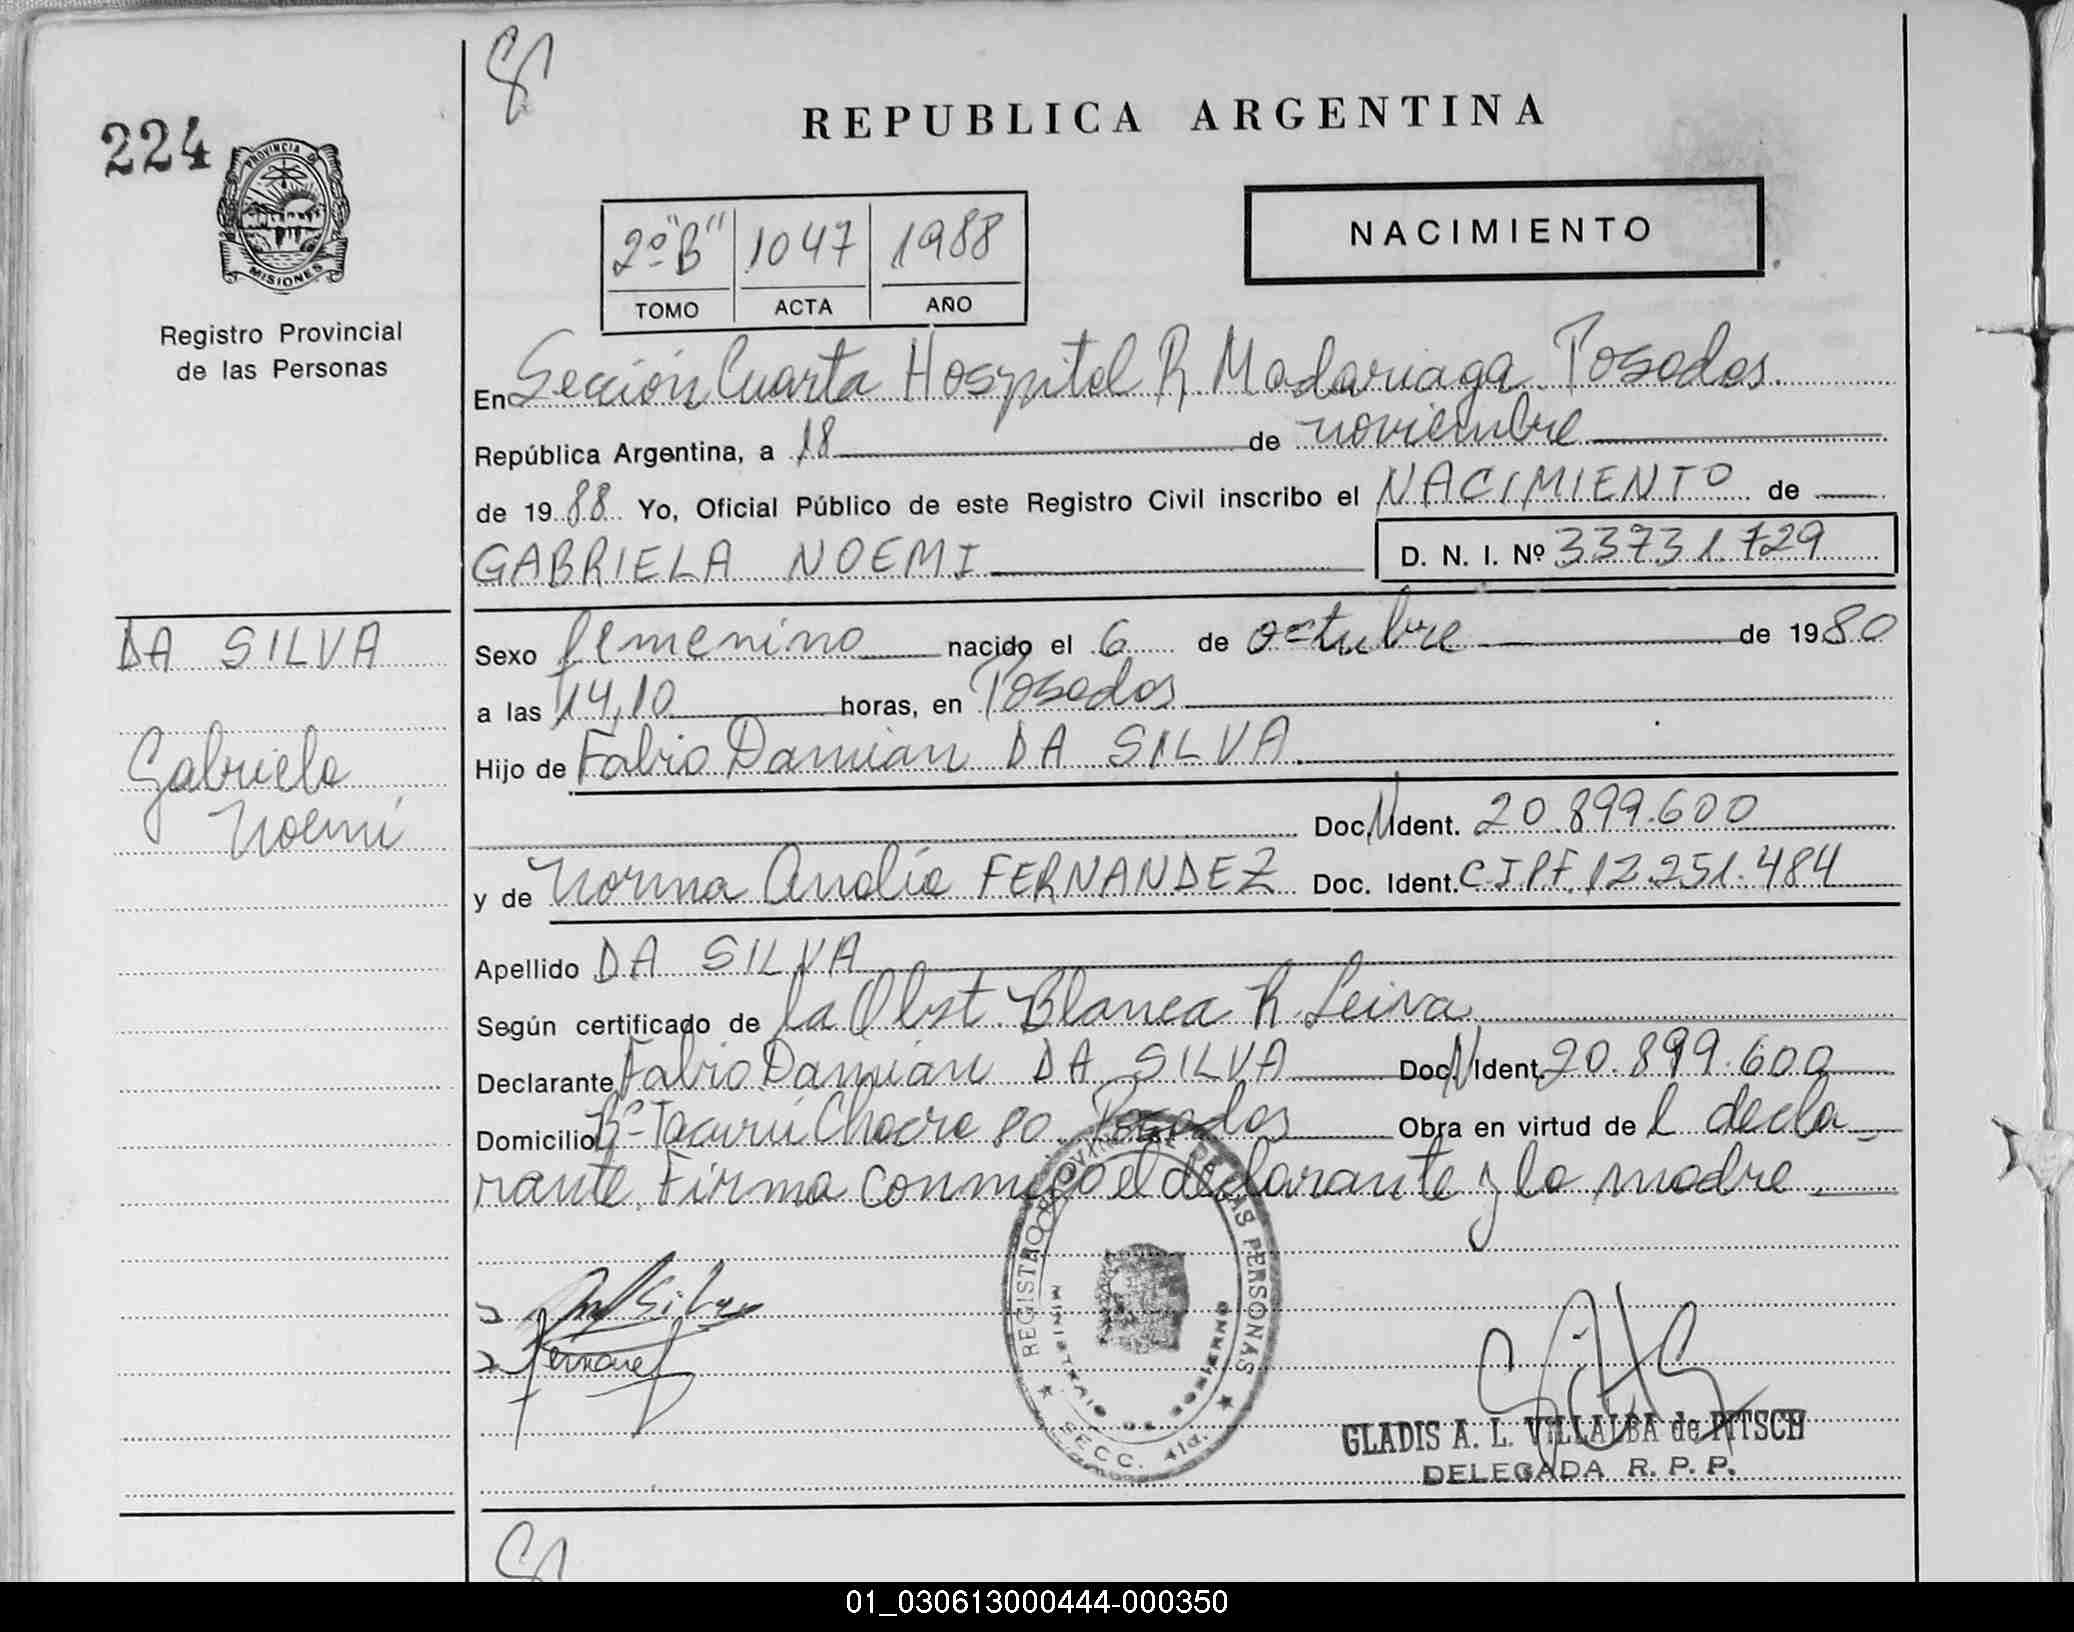 224
PROVINCIA D
MISIONES
Registro Provincial
de las Personas
REPUBLICA ARGENTINA
2º "B" 1047 1988
TOMO ACTA AÑO
NACIMIENTO
En Sección Cuarta Hospital R. Madariaga. Posadas.
República Argentina, a 18 de noviembre
de 1988 Yo, Oficial Público de este Registro Civil inscribo el NACIMIENTO de
GABRIELA NOEMI D. N. I. Nº 33731.729
DA SILVA
Gabriela
Noemí
Sexo femenino nacido el 6 de octubre de 1980
a las 14,10 horas, en Posadas
Hijo de Fabio Damian DA SILVA
Doc. N Ident. 20.899.600
y de Norma Analía FERNANDEZ Doc. Ident. C.I.P.F. 12.251.484
Apellido DA SILVA
Según certificado de la Obst. Blanca R. Leiva
Declarante Fabio Damian DA SILVA Doc. N Ident. 20.899.600
Domicilio Bº Tacurú Chacra 80 Posadas Obra en virtud de l decla
rante. Firma conmigo el declarante y la madre.
REGISTRO PROVIN DE LAS PERSONAS
MINISTERIO DE GOBIERNO
SECC. 4ta.
GLADIS A. L. VILLALBA de PITSCH
DELEGADA R. P. P.
01_030613000444-000350